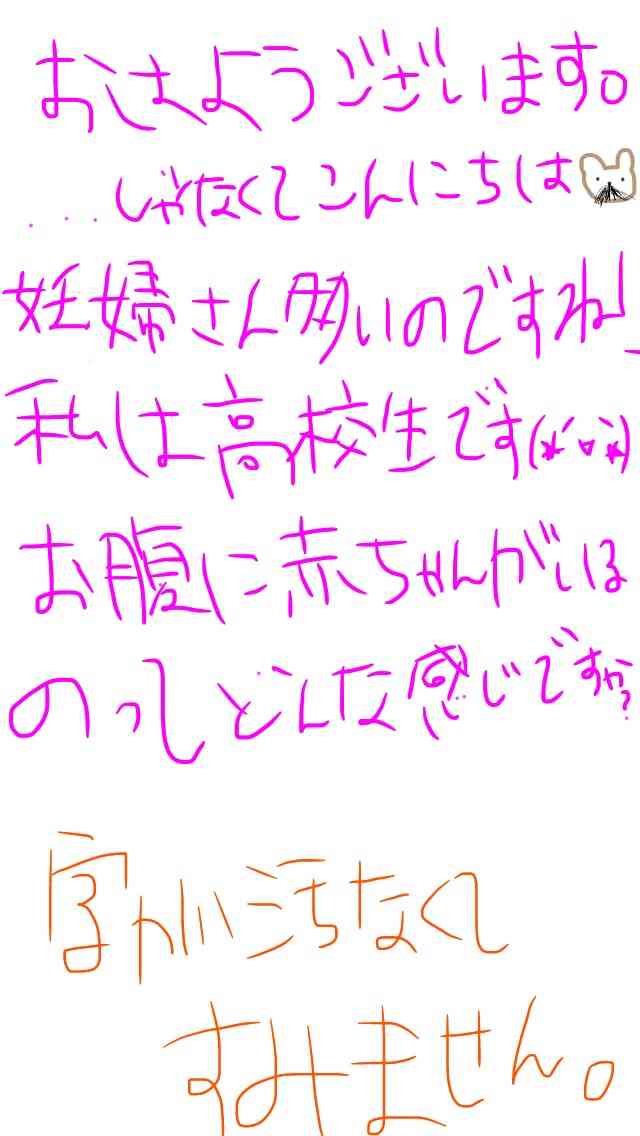 おはようございます。
...じゃなくてこんにちは
妊婦さん多いのですね!
私は高校生です(*´▽`*)
お腹に赤ちゃんがいる
のってどんな感じですか?
字が汚なくて
すみません。